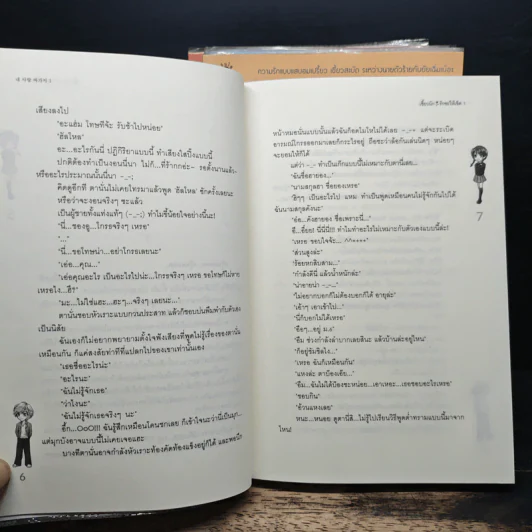 ความรักแบบแสบอมเปรี้ยว เฮี้ยวสเป็ค ระหว่างนายตัวร้ายกับยัยเฉิ่มเบ๊อะ
เสียงลงไป
'อะแฮ่ม โทษทีจ้ะ รับช้าไปหน่อย'
'ฮัลโหล'
อะ...อะไรกันนี่ ปฏิกิริยาแบบนี้ ทำเสียงใส่ปิ๊งแบบนี้
ปกติต้องทำเป็นงอนนี่นา ไม่ก็...ที่รักกกอ่ะ~ รอตั้งนานแล้ง~
หรืออะไรประมาณนั้นนี่นา -_-;
คิดดูอีกที ตานั่นไม่เคยโทรมาแล้วพูด 'ฮัลโหล' ซักครั้งเลยนะ
หรือว่าจะงอนจริงๆ ซะแล้ว
เป็นผู้ชายทั้งแท่งแท้ๆ (-_-;) ทำไมขี้น้อยใจอย่างนี้นะ!
'นี่...ของฮู...โกรธจริงๆ เหรอ'
'...'
'นี่...ขอโทษน่า...อย่าโกรธเลยนะ'
'เอ่อ...คุณ...'
'เอ่อคุณอะไร เป็นอะไรไปน่ะ...โกรธจริงๆ เหรอ ขอโทษก็ไม่หาย
เหรอไง...ฮึ'
'มะ...ไม่ใช่แฮะ...ฮะๆ...จริงๆ เลยนะ...'
ตานั่นชอบหัวเราะแบบกวนประสาท แล้วก็ชอบบ่นพึมพำกับตัวเอง
เป็นนิสัย
ฉันเองก็ไม่อยากพยายามตั้งใจฟังเสียงที่พูดไม่รู้เรื่องของตานั่น
เหมือนกัน ก็แค่สงสัยท่าทีที่แปลกไปของเขาเท่านั้นเอง
'เธอชื่ออะไรน่ะ'
'อะไรนะ'
'ฉันไม่รู้จักเธอ'
'ว่าไงนะ'
'ฉันไม่รู้จักเธอจริงๆ นะ'
อึ๊ก...OoO!!! ฉันรู้สึกเหมือนโดนชกเลย ก็เข้าใจนะว่านี่เป็นมุก...
แต่มุกบังอาจแบบนี้ไม่เคยเจอแฮะ
บางทีตานั่นอาจกำลังหัวเราะท้องคัดท้องแข็งอยู่ก็ได้ และพอนึก
6
หน้าหมอนั่นแบบนั้นแล้วฉันก็อดโมโหไม่ได้เลย -_-+ แต่จะระเบิด
อารมณ์โกรธออกมาเลยก็กระไรอยู่ ถือซะว่าล้อกันเล่นนิดๆ หน่อยๆ
จะยอมให้ก็ได้
แต่ว่า -_-; ทำเป็นเก๊กแบบนี้ไม่เหมาะกับตานี่เลย...
'ฉันชื่อฮายอง...'
'นามสกุลฮา ชื่อยองเหรอ'
'ฮิๆๆ เป็นอะไรไป แหม ทำเป็นพูดเหมือนคนไม่รู้จักกันไปได้
ฉันนามสกุลคังนะ'
'อ๋อ...คังฮายอง ชื่อเพราะนี่...'
อี๋...อี๋ยย! นี่นี่นี่!! ทำไมทำอะไรไม่เหมาะกับตัวเองแบบนี้ล่ะ!
'เหรอ ขอบใจจ้ะ... ^O^;;;;'
'ส่วนสูงล่ะ'
'ร้อยหกสิบสาม...'
'กำลังดีนี่ แล้วน้ำหนักล่ะ'
'น่าอายน่า -_-...'
'ไม่อยากบอกก็ไม่ต้องบอกก็ได้ อายุล่ะ'
'เอ้าๆ เอาเข้าไป...'
'นี่ก็บอกไม่ได้เหรอ'
'คือๆ...อยู่ ม.๕'
'อืม ช่วงกำลังลำบากเลยสินะ แล้วบ้านล่ะอยู่ไหน'
'ก็อยู่ซัมซิลไง...'
'เหรอ ฉันก็เหมือนกัน'
'แหงล่ะ ตาบ๊องเอ๊ย...'
'ชอบกิน'
'อ้วนแหงเลย'
หนะ...หนอย ดูตานี่สิ...ไม่รู้ไปเรียนวิธีพูดต่ำทรามแบบนี้มาจาก
ไหน!
7